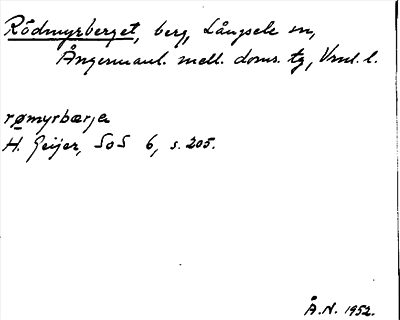 Rödmyrberget, berg, Långsele sn,
Ångermanl. mell. doms. tg, Vnl. l.
rømyrbærje
H. Geijer, SoS 6, s. 205.
Å.N. 1952.